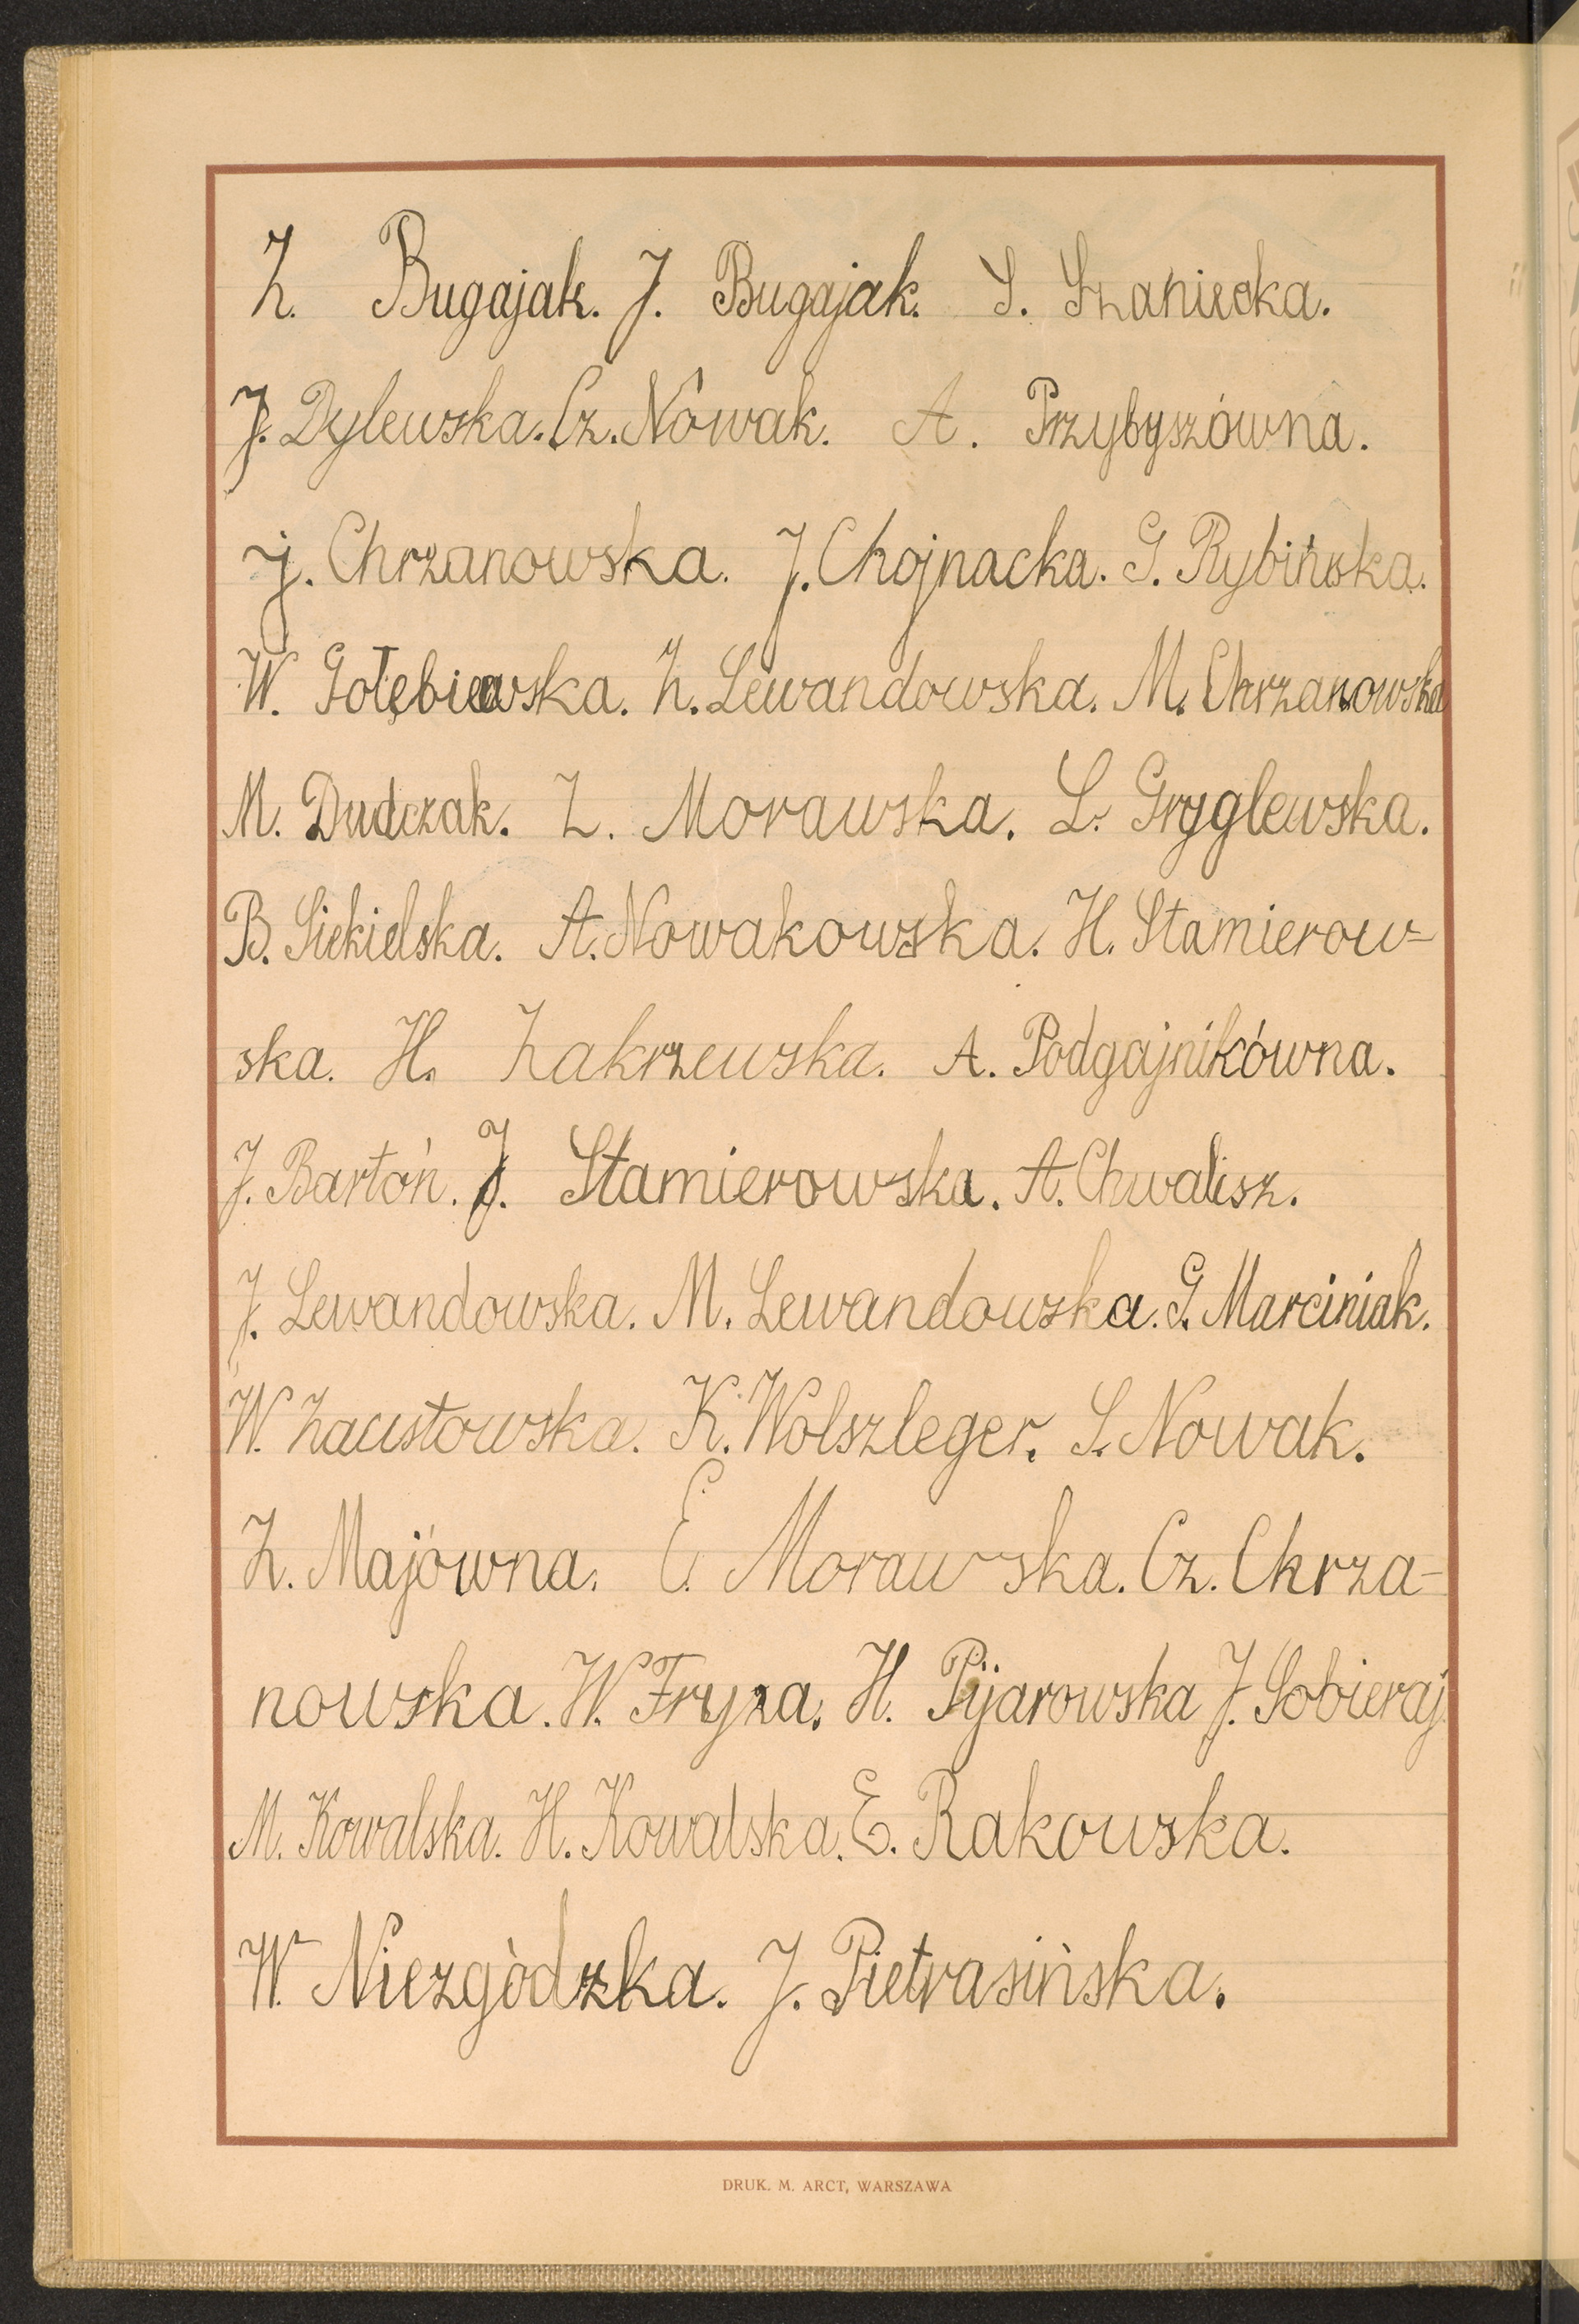 Z. Bugajak. J. Bugajak. S. Szaniecka.
J. Dylewska. Cz. Nowak. A. Przybyszówna.
J. Chrzanowska. J. Chojnacka. G. Rybińska.
W. Gołębiewska. Z. Lewandowska. M. Chrzanowska
M. Dudczak. Z. Morawska. L. Gryglewska.
B. Siekielska. A. Nowakowska. H. Stamierow=
ska. H. Zakrzewska. A. Podgajnikówna.
J. Bartoń. J. Stamierowska. A. Chwalisz.
J. Lewandowska. M. Lewandowska. G. Marciniak.
W. Zaustowska. K. Wolszleger. S. Nowak.
Z. Majówna. E. Morawska. Cz. Chrza-
nowska. W. Fryza. H. Pijarowska J. Sobieraj.
M. Kowalska. H. Kowalska. E. Rakowska.
W. Niezgòdzka. J. Pietrasińska.
DRUK. M. ARCT, WARSZAWA